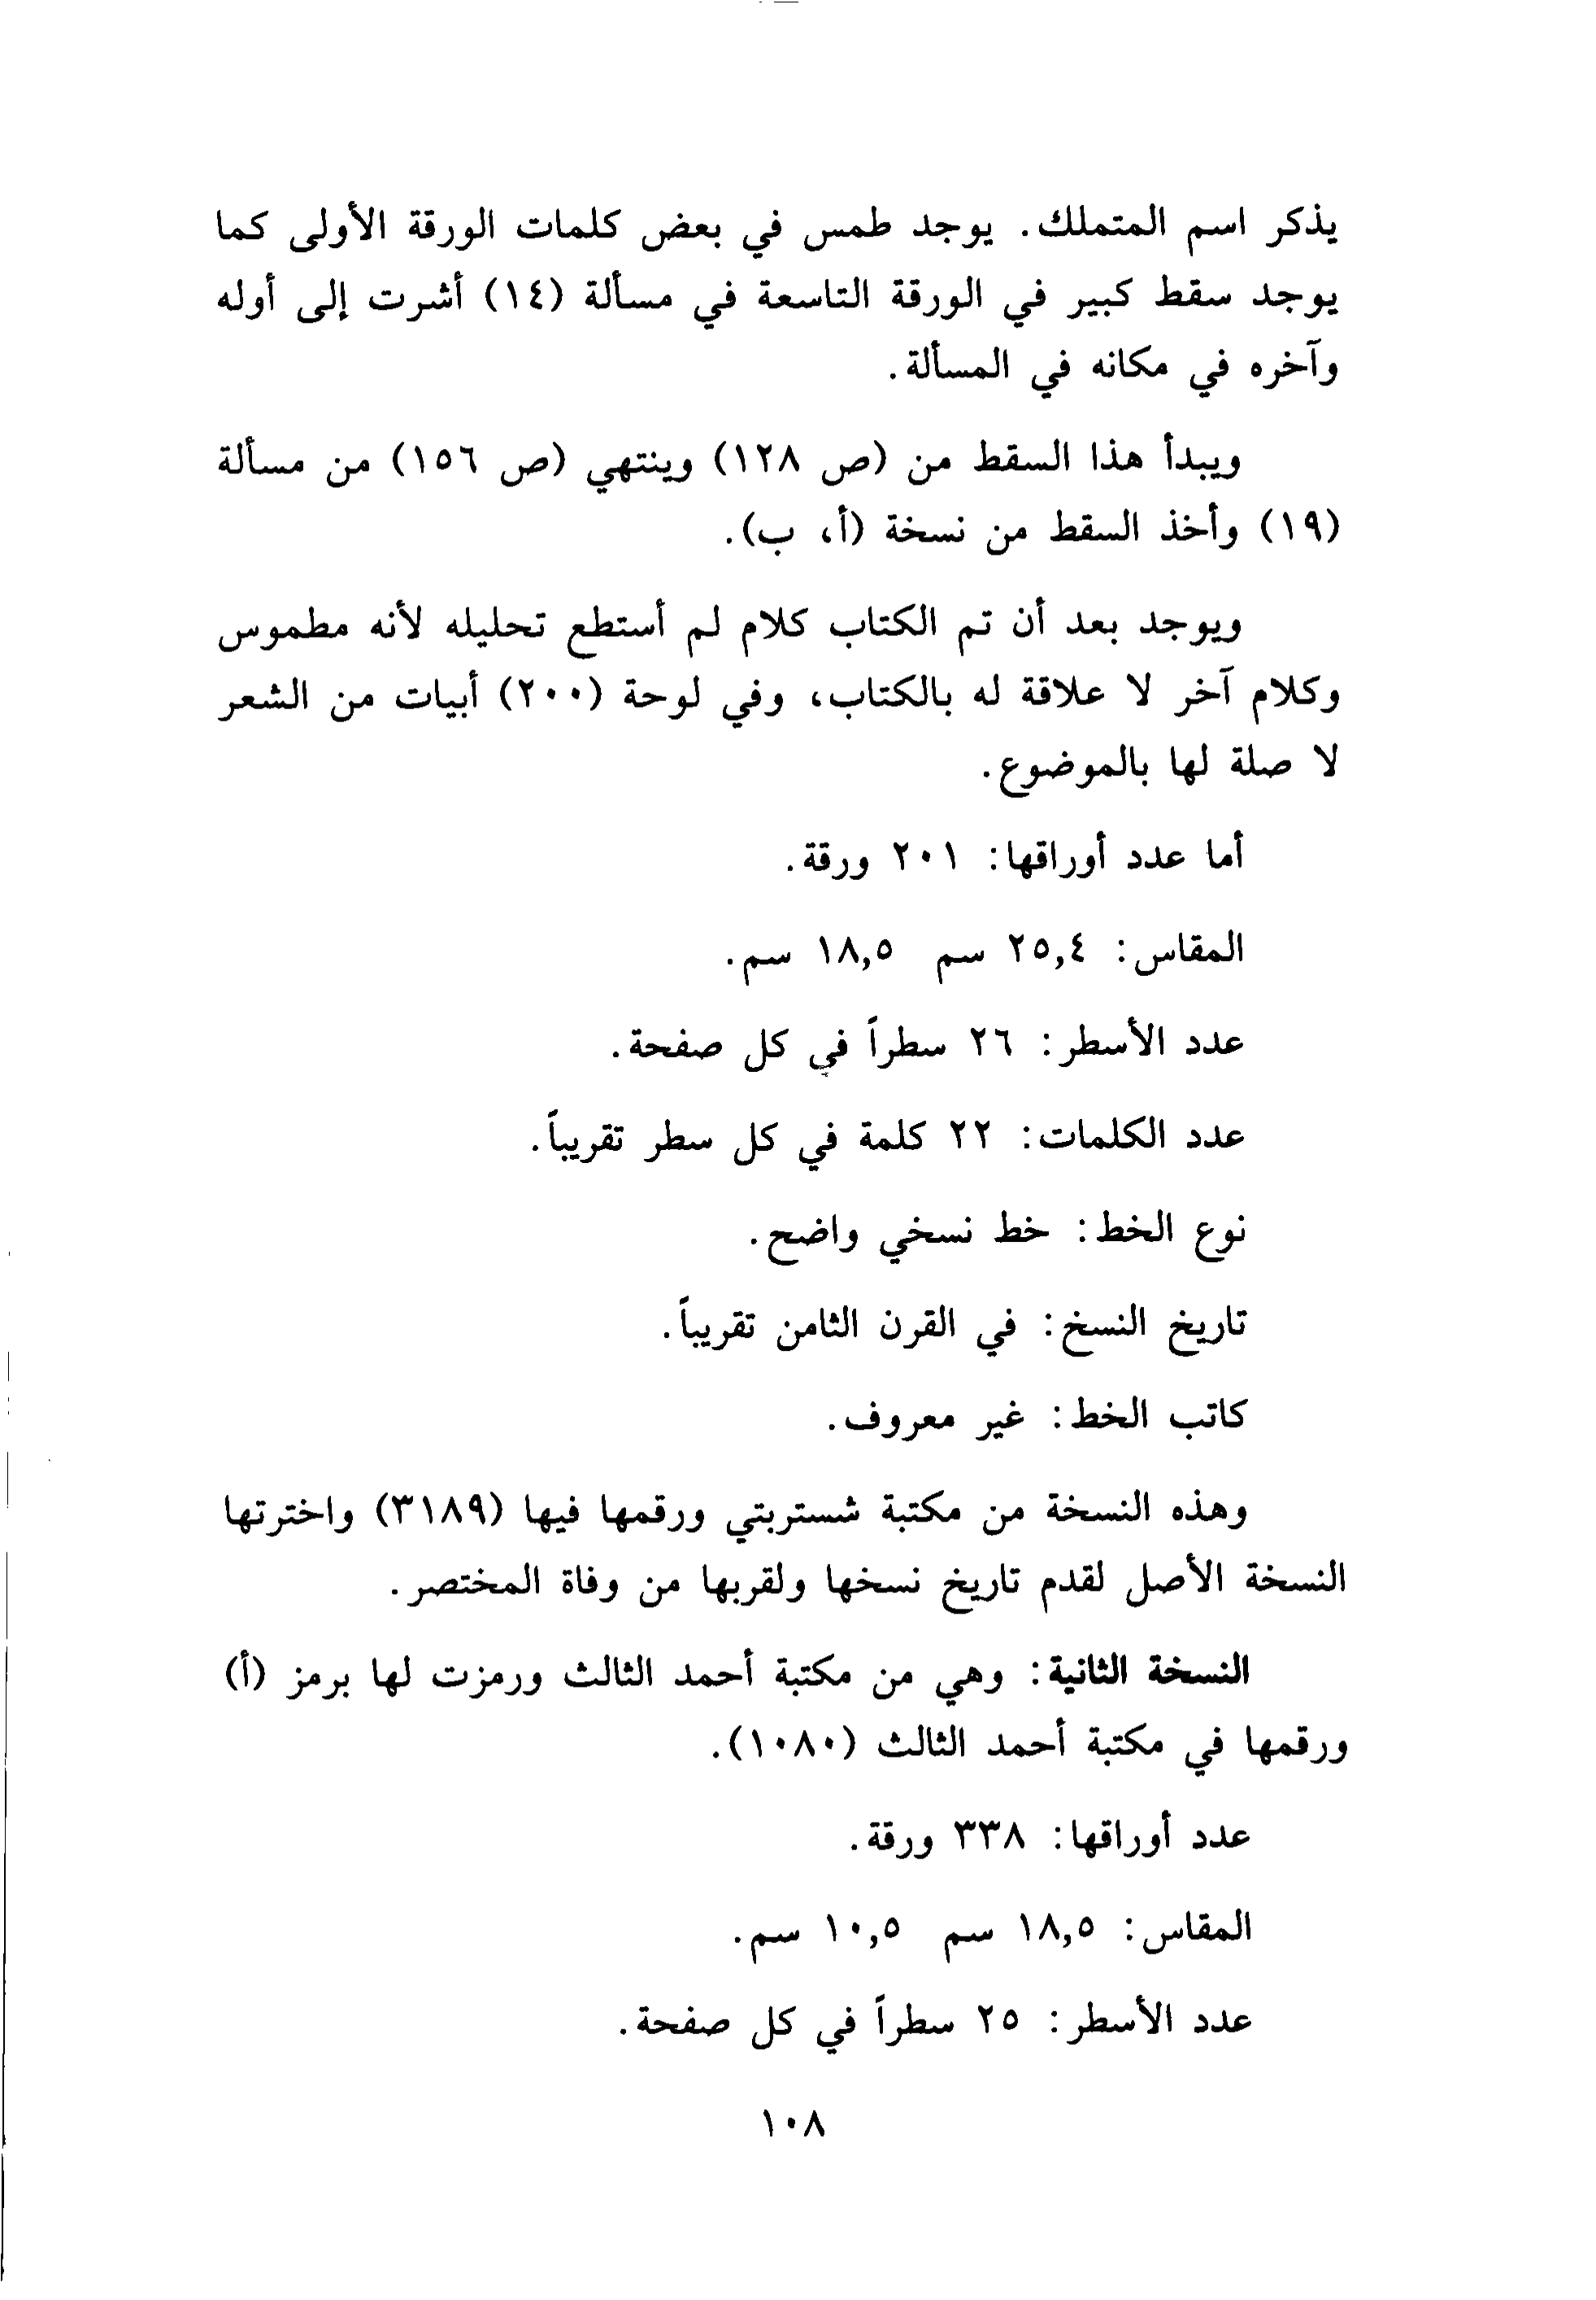 يذكر اسم المتملك. يوجد طمس في بعض كلمات الورقة الأولى كما
يوجد سقط كبير في الورقة التاسعة في مسألة (١٤) أشرت إلى أوله
وآخره في مكانه في المسألة.
ويبدأ هذا السقط من (ص ١٢٨) وينتهي (ص ١٥٦) من مسألة
(١٩) وأخذ السقط من نسخة (أ، ب).
ويوجد بعد أن تم الكتاب كلام لم أستطع تحليله لأنه مطموس
وكلام آخر لا علاقة له بالكتاب، وفي لوحة (٢٠٠) أبيات من الشعر
لا صلة لها بالموضوع.
أما عدد أوراقها: ٢٠١ ورقة.
المقاس: ٢٥,٤ سم ١٨,٥ سم.
عدد الأسطر: ٢٦ سطراً في كل صفحة.
عدد الكلمات: ٢٢ كلمة في كل سطر تقريباً.
نوع الخط: خط نسخي واضح.
تاريخ النسخ: في القرن الثامن تقريباً.
كاتب الخط: غير معروف.
وهذه النسخة من مكتبة شستربتي ورقمها فيها (٣١٨٩) واخترتها
النسخة الأصل لقدم تاريخ نسخها ولقربها من وفاة المختصر.
النسخة الثانية: وهي من مكتبة أحمد الثالث ورمزت لها برمز (أ)
ورقمها في مكتبة أحمد الثالث (١٠٨٠).
عدد أوراقها: ٣٣٨ ورقة.
المقاس: ١٨,٥ سم ١٠,٥ سم.
عدد الأسطر: ٢٥ سطراً في كل صفحة.
١٠٨